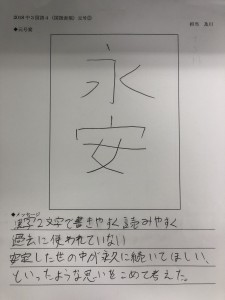 ◆元号案
永安
◆メッセージ
漢字2文字で書きやすく読みやすく
過去に使われていない
安定した世の中が永久に続いてほしい、
といったような思いをこめて考えた。